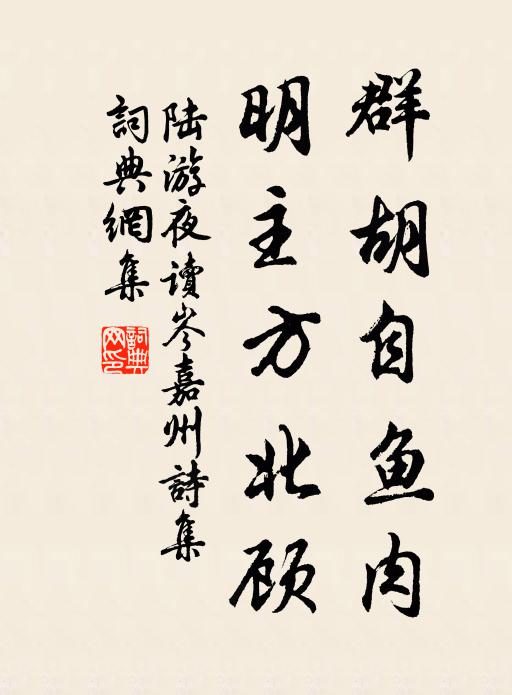 群胡自鱼肉
明主方北顾
陆游夜读岑嘉州詩集
詞典網集
詞典网印